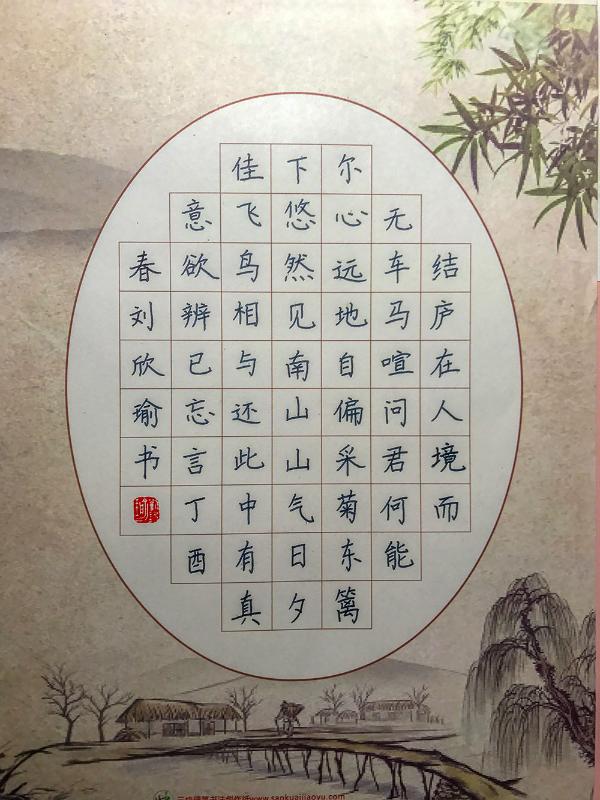 结庐在人境而
无车马喧问君何能
尔心远地自偏采菊东篱
下悠然见南山山气日夕
佳飞鸟相与还此中有真
意欲辨已忘言丁酉
春刘欣瑜书
www.sankuaijiaoyu.com